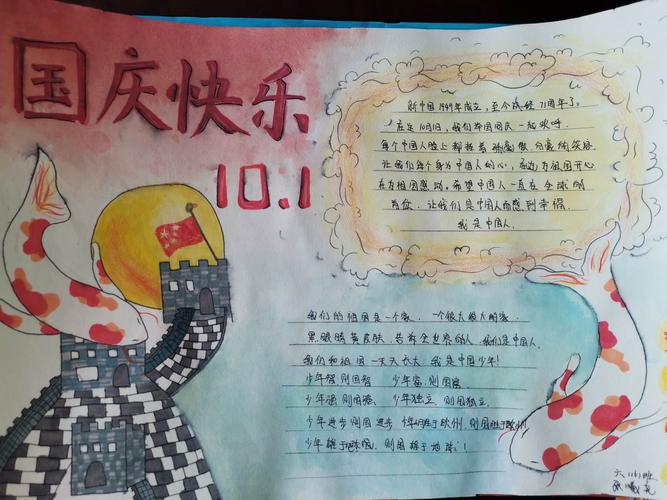 国庆快乐
10.1
新中国1949年成立，至今成经71周年了。
在这10月1日，我们举国同庆一起欢呼
每个中国人脸上都挂着
让我们每个身为中国人的心，为祖国开心
在为祖国感动，希望中国人一直在全球的
首位，让我们是中国人而感到幸福
我是中国人
我们的祖国是一个家，一个很大很大的家
黑眼睛黄皮肤，告诉全世界的人，我们是中国人
我们和祖国一天天长大，我是中国少年！
少年智则国智 少年富则国富
少年强则国强、少年独立则国独立
少年进步则国进步 少年胜于欧州，则国胜于欧州
少年雄于地球，则国雄于地球！